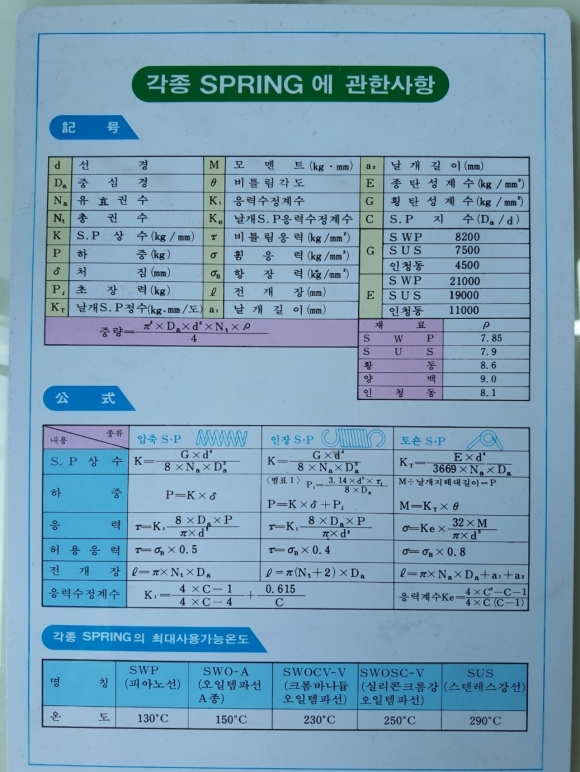 각종 SPRING 에 관한사항
記 号
d 선 경 M 모 멘 트 (kg · mm) a₂ 날 개 길 이 (mm)
Dₐ 중 심 경 θ 비 틀 림 각 도 E 종 탄 성 계 수 (kg / mm²)
Nₐ 유 효 권 수 K₁ 응력수정계수 G 횡 탄 성 계 수 (kg / mm²)
N₁ 총 권 수 Kₑ 날개S.P응력수정계수 C S . P 지 수 (Dₐ / d)
K S.P 상 수 (kg / mm) τ 비 틀 림 응 력 (kg/mm²) G S W P 8200
P 하 중 (kg) σ 휨 응 력 (kg/mm²) S U S 7500
δ 처 짐 (mm) σ_B 항 장 력 (kg/mm²) 인청동 4500
P₁ 초 장 력 (kg) ℓ 전 개 장 (mm) E S W P 21000
K_T 날개S.P정수(kg.mm/도) a₁ 날 개 길 이 (mm) S U S 19000
인청동 11000
중량= π²×Dₐ×d²×N₁×ρ / 4
재 료 ρ
S W P 7.85
S U S 7.9
황 동 8.6
양 백 9.0
인 청 동 8.1
公 式
내용 종류 압축 S·P 인장 S·P 토숀 S·P
S.P 상 수 K= G×d⁴ / 8×Nₐ×Dₐ³ K= G×d⁴ / 8×Nₐ×Dₐ³ K_T= E×d⁴ / 3669×Nₐ×Dₐ
하 중 P=K×δ 〈별표 1〉 P₁= 3.14×d³×τ₁ / 8×Dₐ P=K×δ+P₁ M÷날개지레대길이=P M=K_T×θ
응 력 τ=K₁ 8×Dₐ×P / π×d³ τ=K₁ 8×Dₐ×P / π×d³ σ=Ke× 32×M / π×d³
허 용 응 력 τ=σ_B×0.5 τ=σ_B×0.4 σ=σ_B×0.8
전 개 장 ℓ=π×N₁×Dₐ ℓ=π(N₁+2)×Dₐ ℓ=π×Nₐ×Dₐ+a₁+a₂
응력수정계수 K₁= 4×C−1 / 4×C−4 + 0.615 / C 응력계수Ke= 4×C²−C−1 / 4×C(C−1)
각종 SPRING의 최대사용가능온도
명 칭 SWP (피아노선) SWO-A (오일템파선 A종) SWOCV-V (크롬바나듐 오일템파선) SWOSC-V (실리콘크롬강 오일템파선) SUS (스텐레스강선)
온 도 130°C 150°C 230°C 250°C 290°C